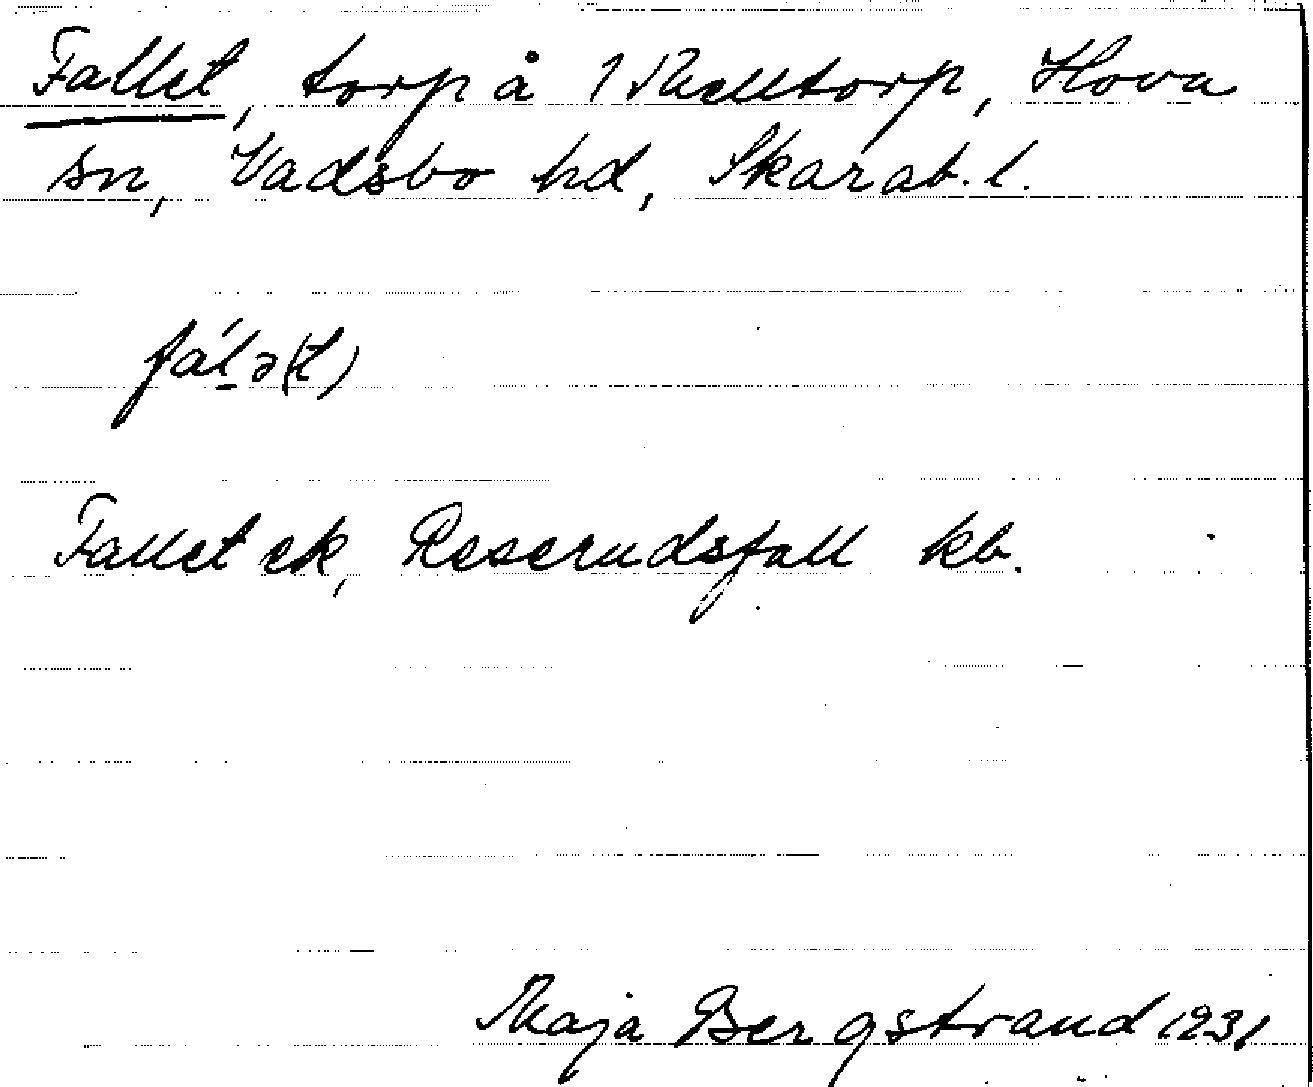 Fallet, torp å 1 Melltorp, Hova
sn, Vadsbo hd, Skarab. l.
fál̠ə(t)
Fallet ek, Reserudsfall kb.
Maja Bergstrand 1931